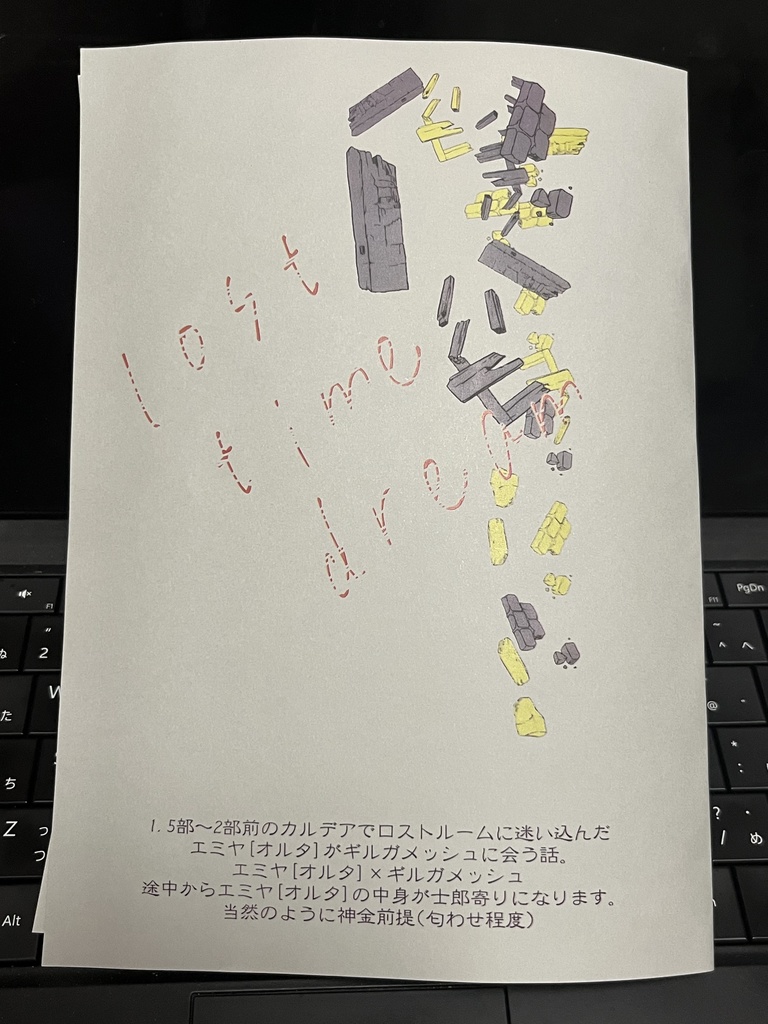 lost
time
dream
1.5部～2部前のカルデアでロストルームに迷い込んだ
エミヤ[オルタ]がギルガメッシュに会う話。
エミヤ[オルタ]×ギルガメッシュ
途中からエミヤ[オルタ]の中身が士郎寄りになります。
当然のように神金前提(匂わせ程度)
F1
F11
PgDn
"
2
ぬ
W
た
ち
Z
っ
つ
Alt
~
^
へ
@
*
:
?
・
/
め